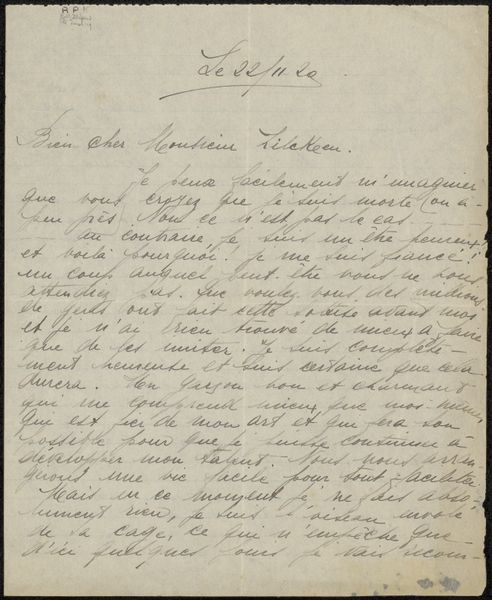 Le 22/11 20
Bien cher Monsieur Zilcken.
Je peux facilement m'imaginer
que vous croyez que je suis morte (ou à-
peu près) Non ce n'est pas le cas
au contraire, je suis un être heureux!
et voilà pourquoi. Je me suis fiancé!
un coup auquel peut être vous ne vous
attendiez pas. Que voulez vous, des millions
de gens ont fait cette sottise avant moi
et je n'ai rien trouvé de mieux à faire
que de les imiter. Je suis complète-
ment heureuse et suis certaine que cela
durera. Un garçon bon et charmant
qui me comprend mieux que moi-même,
qui est fier de mon art et qui fera son
possible pour que je puisse continuer à
développer mon talent. Nous nous arran-
gerons une vie facile pour tout faciliter
Mais en ce moment je ne fais abso-
lument rien, je suis l'oiseau envolé
de sa cage, ce qui n'empêche que
d'ici quelques jours je vais recom-